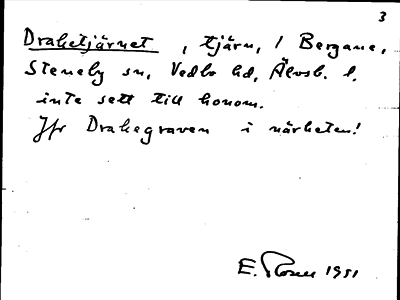 3
Draketjärnet, tjärn, i Bergane,
Steneby sn, Vedbo hd, Älvsb. l.
inte sett till honom.
Jfr Drakegraven i närheten!
E. Rosén 1951